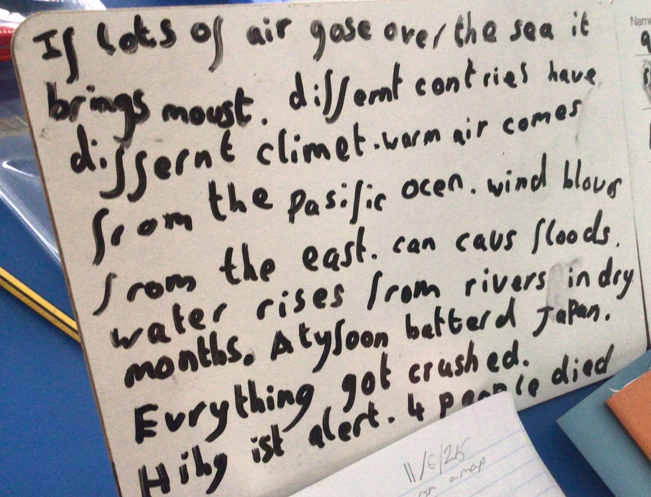 If lots of air gose over the sea it
brings moust. differnt contries have
differnt climet. warm air comes
from the pasific ocen. wind blows
from the east. can caus floods.
water rises from rivers in dry
months. A tyfoon batterd Japan.
Evrything got crushed.
Hihg ist alert. 4 people died
11/6/25
a map
Name